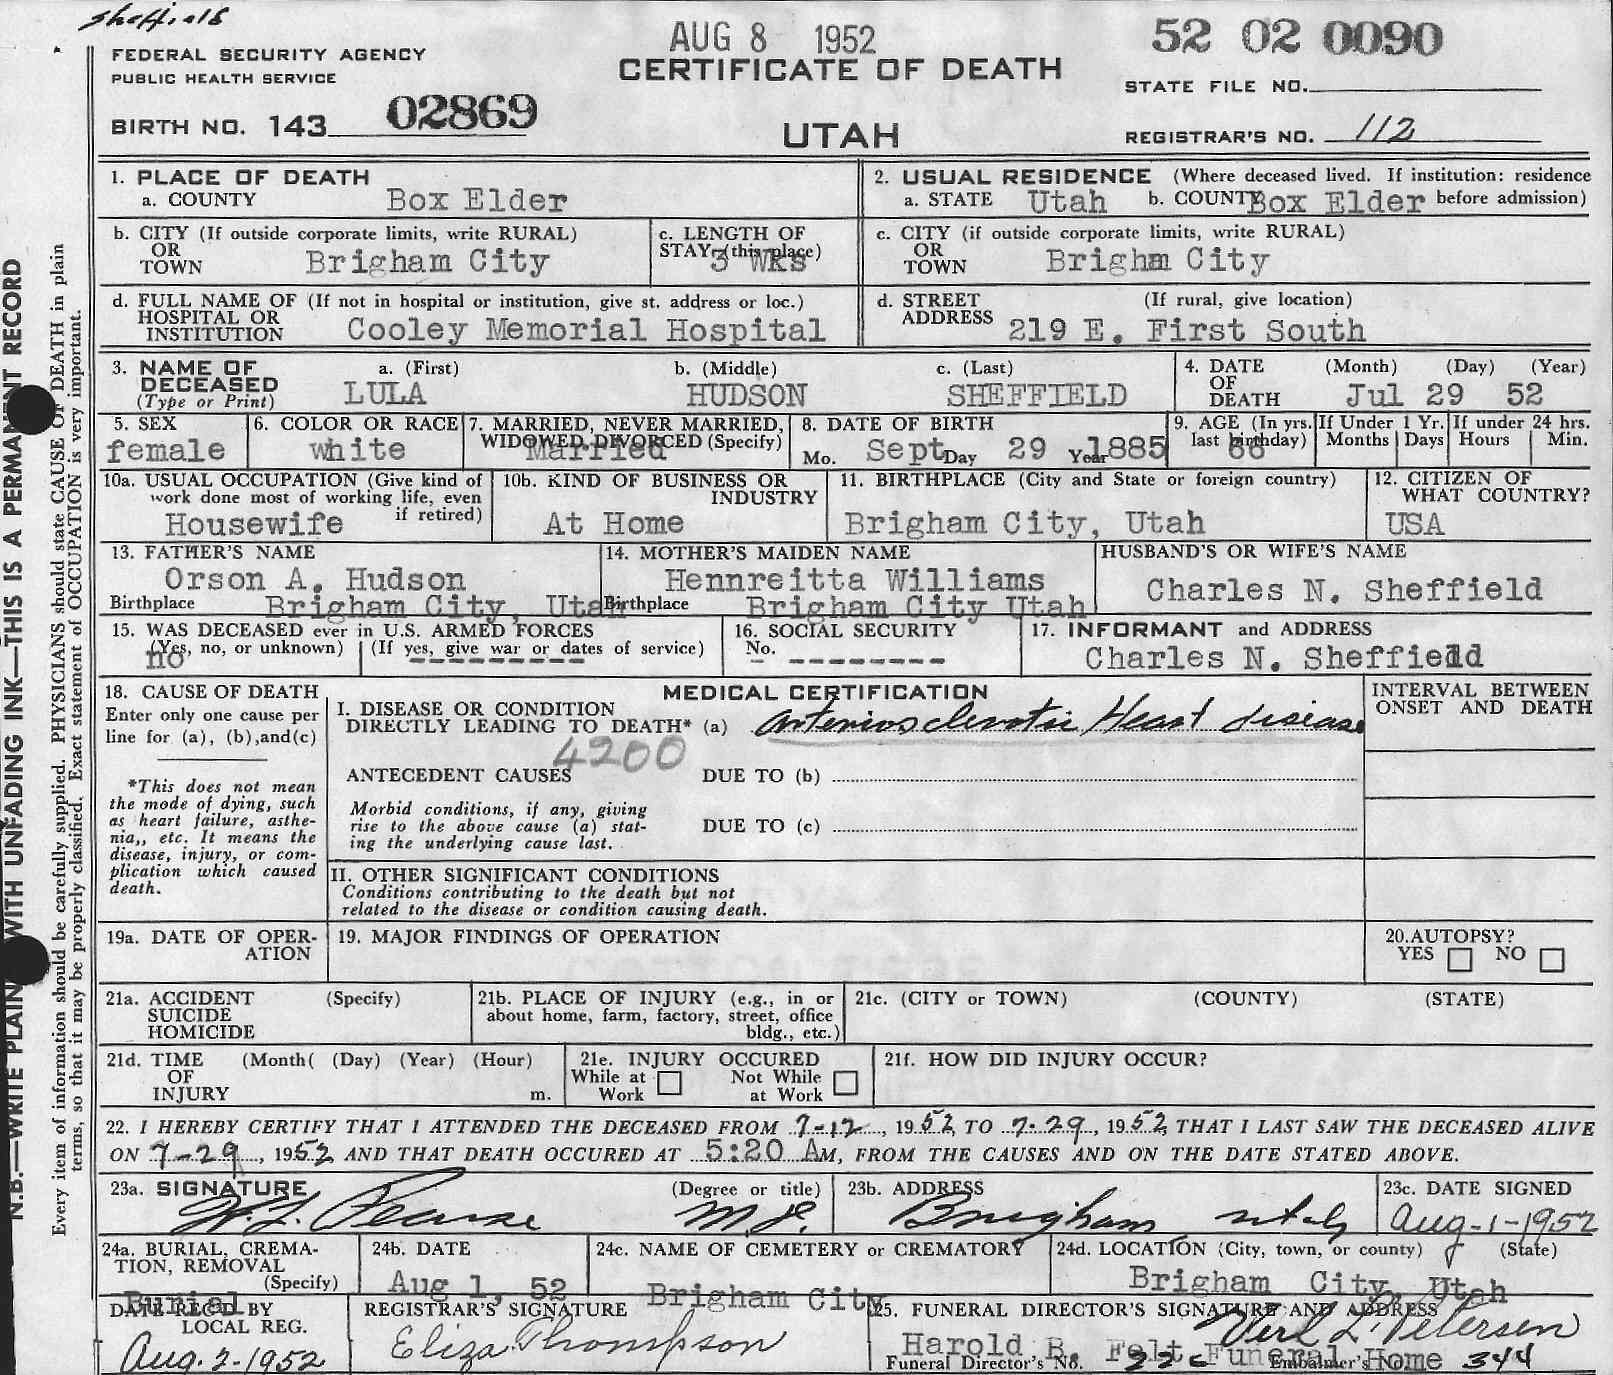 Sheffield
AUG 8 1952
52 02 0090
FEDERAL SECURITY AGENCY
PUBLIC HEALTH SERVICE
CERTIFICATE OF DEATH
STATE FILE NO.
BIRTH NO. 143 02869
UTAH
REGISTRAR'S NO. 112
N.B.—WRITE PLAIN WITH UNFADING INK—THIS IS A PERMANENT RECORD
Every item of information should be carefully supplied. PHYSICIANS should state CAUSE OF DEATH in plain
terms, so that it may be properly classified. Exact statement of OCCUPATION is very important.
1. PLACE OF DEATH
a. COUNTY Box Elder
2. USUAL RESIDENCE (Where deceased lived. If institution: residence
a. STATE Utah b. COUNTY Box Elder before admission)
b. CITY (If outside corporate limits, write RURAL)
OR
TOWN Brigham City
c. LENGTH OF
STAY (this place)
3 Wks
c. CITY (if outside corporate limits, write RURAL)
OR
TOWN Brighm City
d. FULL NAME OF (If not in hospital or institution, give st. address or loc.)
HOSPITAL OR
INSTITUTION Cooley Memorial Hospital
d. STREET (If rural, give location)
ADDRESS 219 E. First South
3. NAME OF
DECEASED
(Type or Print)
a. (First) b. (Middle) c. (Last)
LULA HUDSON SHEFFIELD
4. DATE (Month) (Day) (Year)
OF
DEATH Jul 29 52
5. SEX
female
6. COLOR OR RACE
white
7. MARRIED, NEVER MARRIED,
WIDOWED, DIVORCED (Specify)
Married
8. DATE OF BIRTH
Mo. Sept Day 29 Year 1885
9. AGE (In yrs.
last birthday)
66
If Under 1 Yr.
Months Days
If under 24 hrs.
Hours Min.
10a. USUAL OCCUPATION (Give kind of
work done most of working life, even
if retired)
Housewife
10b. KIND OF BUSINESS OR
INDUSTRY
At Home
11. BIRTHPLACE (City and State or foreign country)
Brigham City, Utah
12. CITIZEN OF
WHAT COUNTRY?
USA
13. FATHER'S NAME
Orson A. Hudson
Birthplace Brigham City, Utah
14. MOTHER'S MAIDEN NAME
Hennreitta Williams
Birthplace Brigham City Utah
HUSBAND'S OR WIFE'S NAME
Charles N. Sheffield
15. WAS DECEASED ever in U.S. ARMED FORCES
(Yes, no, or unknown) (If yes, give war or dates of service)
no ----------
16. SOCIAL SECURITY
No.
- --------
17. INFORMANT and ADDRESS
Charles N. Sheffiedd
18. CAUSE OF DEATH
Enter only one cause per
line for (a), (b),and(c)
*This does not mean
the mode of dying, such
as heart failure, asthe-
nia,, etc. It means the
disease, injury, or com-
plication which caused
death.
MEDICAL CERTIFICATION
I. DISEASE OR CONDITION
DIRECTLY LEADING TO DEATH* (a) arteriosclerotic Heart disease
4200
ANTECEDENT CAUSES DUE TO (b)
Morbid conditions, if any, giving
rise to the above cause (a) stat-
ing the underlying cause last.
DUE TO (c)
INTERVAL BETWEEN
ONSET AND DEATH
II. OTHER SIGNIFICANT CONDITIONS
Conditions contributing to the death but not
related to the disease or condition causing death.
19a. DATE OF OPER-
ATION
19. MAJOR FINDINGS OF OPERATION
20.AUTOPSY?
YES NO
21a. ACCIDENT (Specify)
SUICIDE
HOMICIDE
21b. PLACE OF INJURY (e.g., in or
about home, farm, factory, street, office
bldg., etc.)
21c. (CITY or TOWN) (COUNTY) (STATE)
21d. TIME (Month( (Day) (Year) (Hour)
OF
INJURY m.
21e. INJURY OCCURED
While at Work
Not While at Work
21f. HOW DID INJURY OCCUR?
22. I HEREBY CERTIFY THAT I ATTENDED THE DECEASED FROM 7-12, 1952, TO 7-29, 1952, THAT I LAST SAW THE DECEASED ALIVE
ON 7-29, 1952 AND THAT DEATH OCCURED AT 5:20 AM, FROM THE CAUSES AND ON THE DATE STATED ABOVE.
23a. SIGNATURE (Degree or title)
Pearse M.D.
23b. ADDRESS
Brigham utah
23c. DATE SIGNED
Aug-1-1952
24a. BURIAL, CREMA-
TION, REMOVAL
(Specify)
Burial
24b. DATE
Aug 1, 52
24c. NAME OF CEMETERY or CREMATORY
Brigham City
24d. LOCATION (City, town, or county) (State)
Brigham City, Utah
DATE REC'D BY
LOCAL REG.
Aug. 2-1952
REGISTRAR'S SIGNATURE
Eliza Thompson
25. FUNERAL DIRECTOR'S SIGNATURE AND ADDRESS
Verl L. Petersen
Harold B. Felt Funeral Home
Funeral Director's No. Embalmer's No. 344